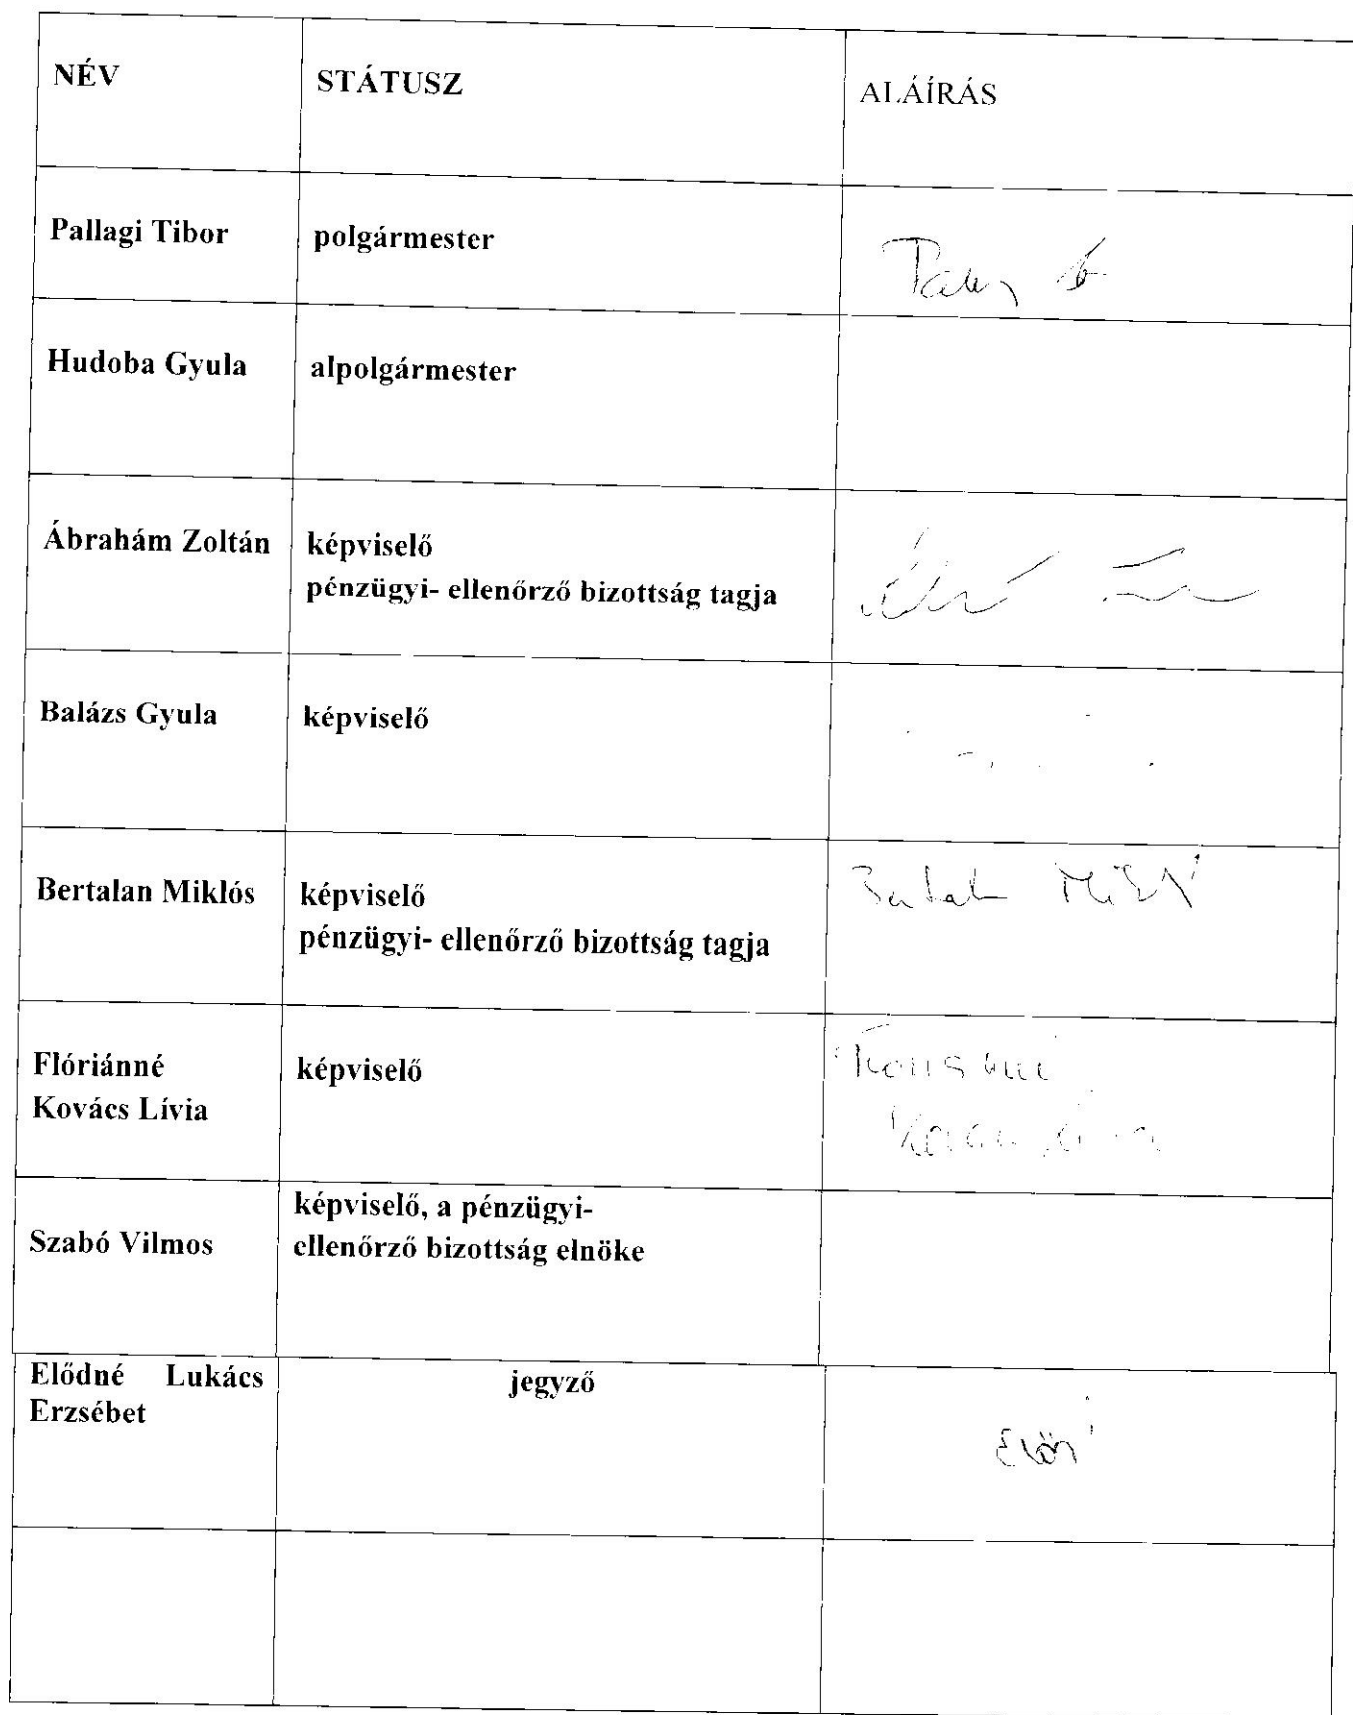 NÉV
STÁTUSZ
ALÁÍRÁS
Pallagi Tibor
polgármester
Hudoba Gyula
alpolgármester
Ábrahám Zoltán
képviselő
pénzügyi- ellenőrző bizottság tagja
Balázs Gyula
képviselő
Bertalan Miklós
képviselő
pénzügyi- ellenőrző bizottság tagja
Flóriánné
Kovács Lívia
képviselő
Szabó Vilmos
képviselő, a pénzügyi-
ellenőrző bizottság elnöke
Elődné Lukács
Erzsébet
jegyző